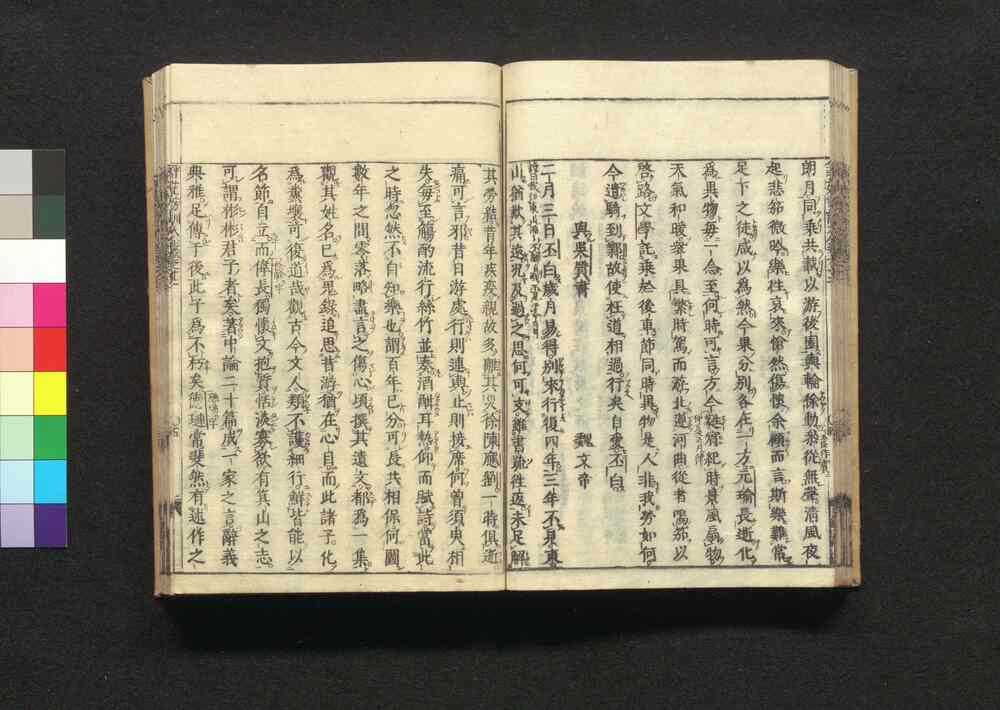 朗月同乘共載以游後園輿輪徐動參從無聲清風夜
起悲笳微吟樂徃哀來愴然傷懷余顧而言斯樂難常
足下之徒咸以為然今果分別各在一方元瑜長逝化
為異物每一念至何時可言方今蕤賔紀時景風扇物
天氣和暖衆果具繁時駕而游北遵河曲從者鳴笳以
啓路文學託乗於後車節同時異物是人非我勞如何
今遣騎到鄴故使枉道相過行矣自愛丕白
與吳質書 魏文帝
二月三日丕白歲月易得別來行復四年三年不見東
山猶歎其遠况乃過之思何可支雖書䟽徃返未足解
其勞結昔年疾疫親故多離其災徐陳應劉一時俱逝
痛可言邪昔日游處行則連輿止則接席何曾須臾相
失每至觴酌流行絲竹並奏酒酣耳熱仰而賦詩當此
之時忽然不自知樂也謂百年已分可長共相保何圖
數年之間零落略盡言之傷心頃撰其遺文都為一集
觀其姓名已為鬼錄追思昔游猶在心目而此諸子化
為糞壤可復道哉觀古今文人類不護細行鮮皆能以
名節自立而偉長獨懷文抱質恬淡寡欲有箕山之志
可謂彬彬君子者矣著中論二十篇成一家之言辭義
典雅足傳于後此子為不朽矣德璉常斐然有述作之